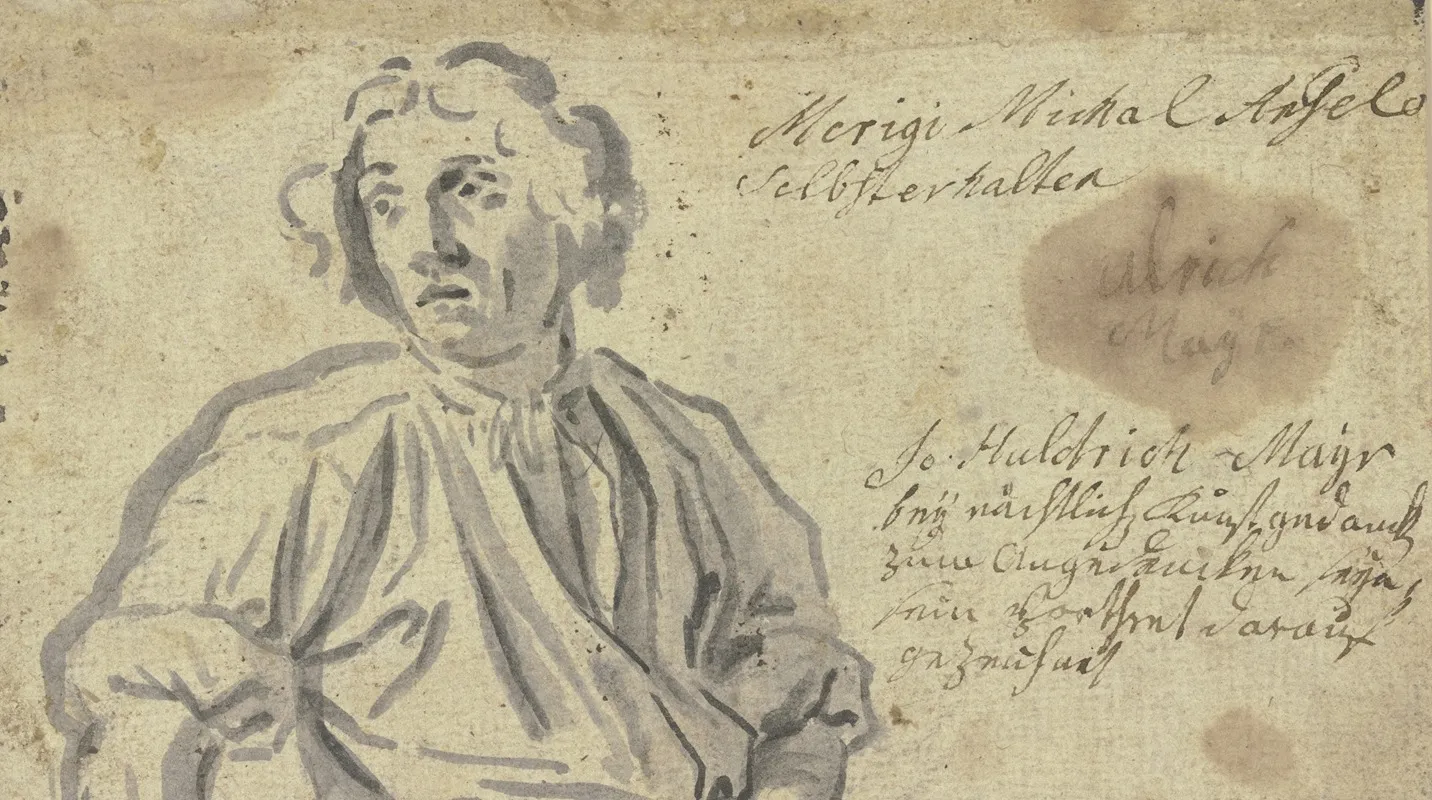 Merigi Michal Angelo
Selbsterhalten
Ulrich
Mayr
Jo. Huldrich Mayr
beÿ nächtlich Kunst gedanck
zum Angedencken seÿn
sein Porthret darauf
gezeichnet